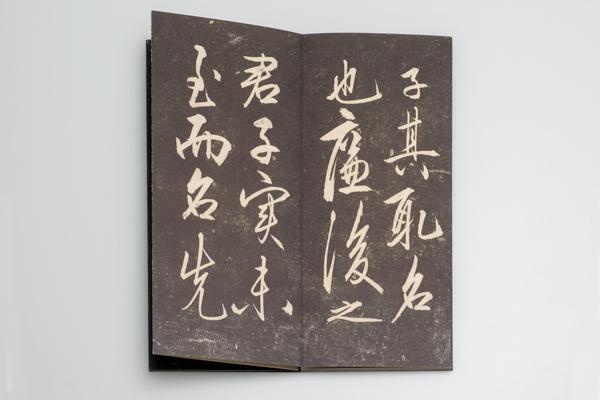 子其取名
也廉後之
君子實未
至而名先